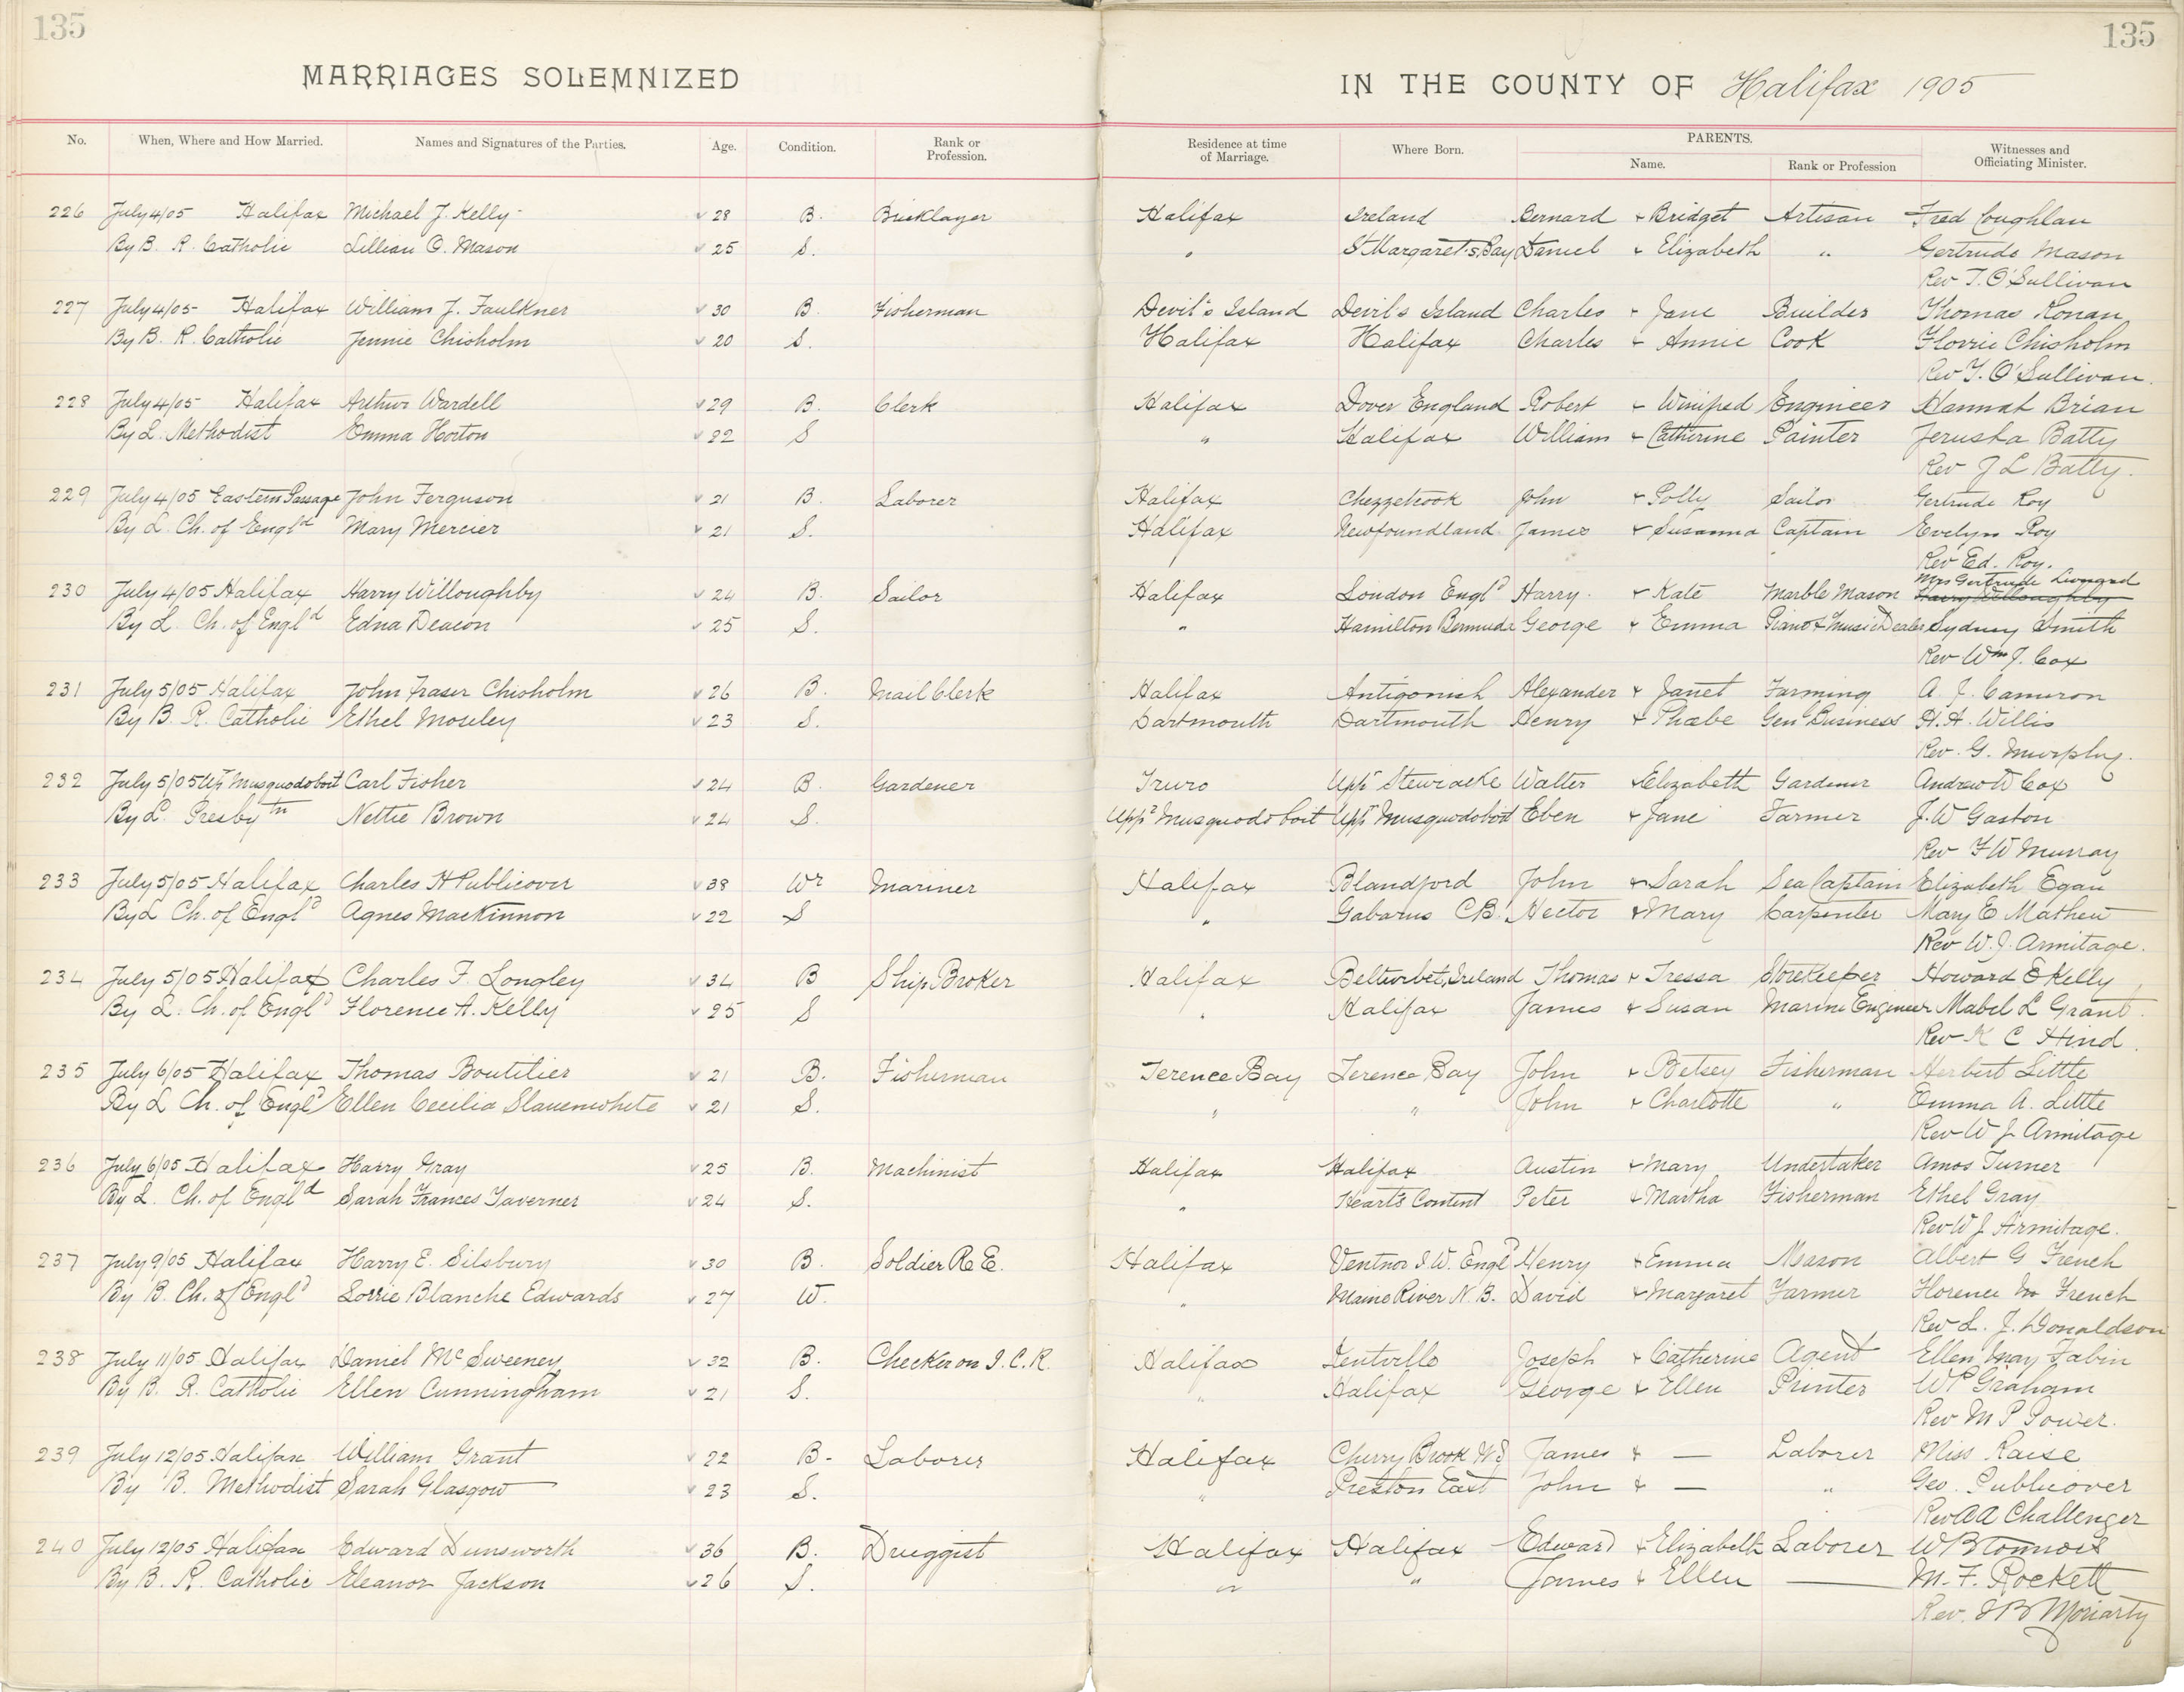 135 135
MARRIAGES SOLEMNIZED IN THE COUNTY OF Halifax 1905
No. When, Where and How Married. Names and Signatures of the Parties. Age. Condition. Rank or Profession. Residence at time of Marriage. Where Born. PARENTS. Name. Rank or Profession Witnesses and Officiating Minister.
226 July 4/05 Halifax Michael J. Kelly 28 B. Bricklayer Halifax Ireland Bernard + Bridget Artisan Fred Coughlan
By B. R. Catholic Lillian O. Mason 25 S. " St Margaret's Bay Daniel + Elizabeth " Gertrude Mason
Rev T. O'Sullivan
227 July 4/05 Halifax William J. Faulkner 30 B. Fisherman Devil's Island Devil's Island Charles + Jane Builder Thomas Ronan
By B. R. Catholic Jennie Chisholm 20 S. Halifax Halifax Charles + Annie Cook Florrie Chisholm
Rev T. O'Sullivan.
228 July 4/05 Halifax Arthur Wardell 29 B. Clerk Halifax Dover England Robert + Winifred Engineer Hannah Brian
By L. Methodist Emma Horton 22 S " Halifax William + Catherine Painter Jerusha Batty
Rev J L Batty.
229 July 4/05 Eastern Passage John Ferguson 21 B. Laborer Halifax Chezzetcook John + Polly Sailor Gertrude Roy
By L. Ch. of Engld Mary Mercier 21 S. Halifax Newfoundland James + Susanna Captain Evelyn Roy
Rev Ed. Roy.
Mrs Gertrude
230 July 4/05 Halifax Harry Willoughby 24 B. Sailor Halifax London Engld Harry + Kate Marble Mason Harry Willoughby
By L. Ch. of Engld Edna Deacon 25 S. " Hamilton Bermuda George + Emma Piano & Music Dealer Sydney Smith
Rev Wm J. Cox
231 July 5/05 Halifax John Fraser Chisholm 26 B. Mail Clerk Halifax Antigonish Alexander + Janet Farming A. J. Cameron
By B. R. Catholic Ethel Moseley 23 S. Dartmouth Dartmouth Henry + Phœbe Genl Business H. A. Willis
Rev. G. Murphy.
232 July 5/05 Upr Musquodoboit Carl Fisher 24 B. Gardener Truro Uppr Stewiacke Walter + Elizabeth Gardener Andrew W Cox
By L. Presbytn Nettie Brown 24 S. Uppr Musquodoboit Uppr Musquodoboit Eben + Jane Farmer J. W Gaston
Rev F W Murray
233 July 5/05 Halifax Charles H Publicover 38 Wr Mariner Halifax Blandford John + Sarah Sea Captain Elizabeth Egan
By L Ch. of Engld Agnes MacKinnon 22 S " Gabarus C.B. Hector + Mary Carpenter Mary E Mathew
Rev W. J. Armitage.
234 July 5/05 Halifax Charles F. Longley 34 B Ship Broker Halifax Belturbet, Ireland Thomas + Tressa Storekeeper Howard E Kelly
By L. Ch. of Engld Florence A. Kelly 25 S " Halifax James + Susan Marine Engineer Mabel L Grant.
Rev K C Hind.
235 July 6/05 Halifax Thomas Boutilier 21 B. Fisherman Terence Bay Terence Bay John + Betsey Fisherman Herbert Little
By L Ch. of Engld Ellen Cecilia Slauenwhite 21 S. " " John + Charlotte " Emma A. Little
Rev W J Armitage
236 July 6/05 Halifax Harry Gray 25 B. Machinist Halifax Halifax Austin + Mary Undertaker Amos Turner
By L. Ch. of Engld Sarah Frances Taverner 24 S. " Heart's Content Peter + Martha Fisherman Ethel Gray
Rev W J Armitage.
237 July 9/05 Halifax Harry E. Silsbury 30 B. Soldier R E. Halifax Ventnor I. W. Engld Henry + Emma Mason Albert G French
By B. Ch. of Engld Lorrie Blanche Edwards 27 W. " Maine River N B. David + Margaret Farmer Florence M French
Rev L. J. Donaldson
238 July 11/05 Halifax Daniel McSweeney 32 B. Checker on I. C. R. Halifax Kentville Joseph + Catherine Agent Ellen May Fabin
By B. R. Catholic Ellen Cunningham 21 S. " Halifax George + Ellen Printer W P Graham
Rev M P Power.
239 July 12/05 Halifax William Grant 22 B- Laborer Halifax Cherry Brook James + — Laborer Miss Raise
By B. Methodist Sarah Glasgow 23 S. " Preston East John + — " Geo. Publicover
Rev A A Challenger
240 July 12/05 Halifax Edward Dunsworth 36 B. Druggist Halifax Halifax Edward + Elizabeth Laborer W B Connors
By B. R. Catholic Eleanor Jackson 26 S. " " James + Ellen — M. F. Rockett
Rev. J B Moriarty